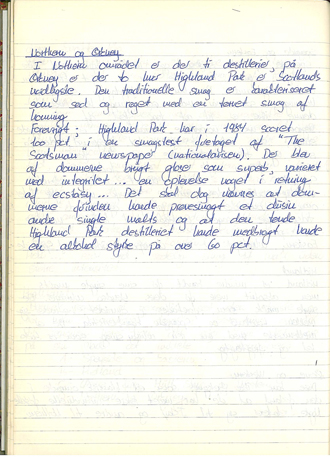 Northern og Orkney
I Northern området er der ti destillerier, på
Orkney er der to hvor Highland Park er Scotlands
nordligste. Den traditionelle smag er karakteriseret
som sød og røget med en tørret smag af
honning.
Forøvrigt; Highland Park har i 1984 scoret
100 pct. i en smagstest foretaget af "The
Scotsman" newspaper (nationalavisen). Der blev
af dommerne brugt gloser som superb,
med integritet... en oplevelse noget i retning
af ecstasy... Det skal dog nævnes at dom-
merne forinden havde prøvesmagt et dusin
andre single malts og at den
Highland Park destilleriet havde medbragt havde
en alkohol styrke på over 60 pct.